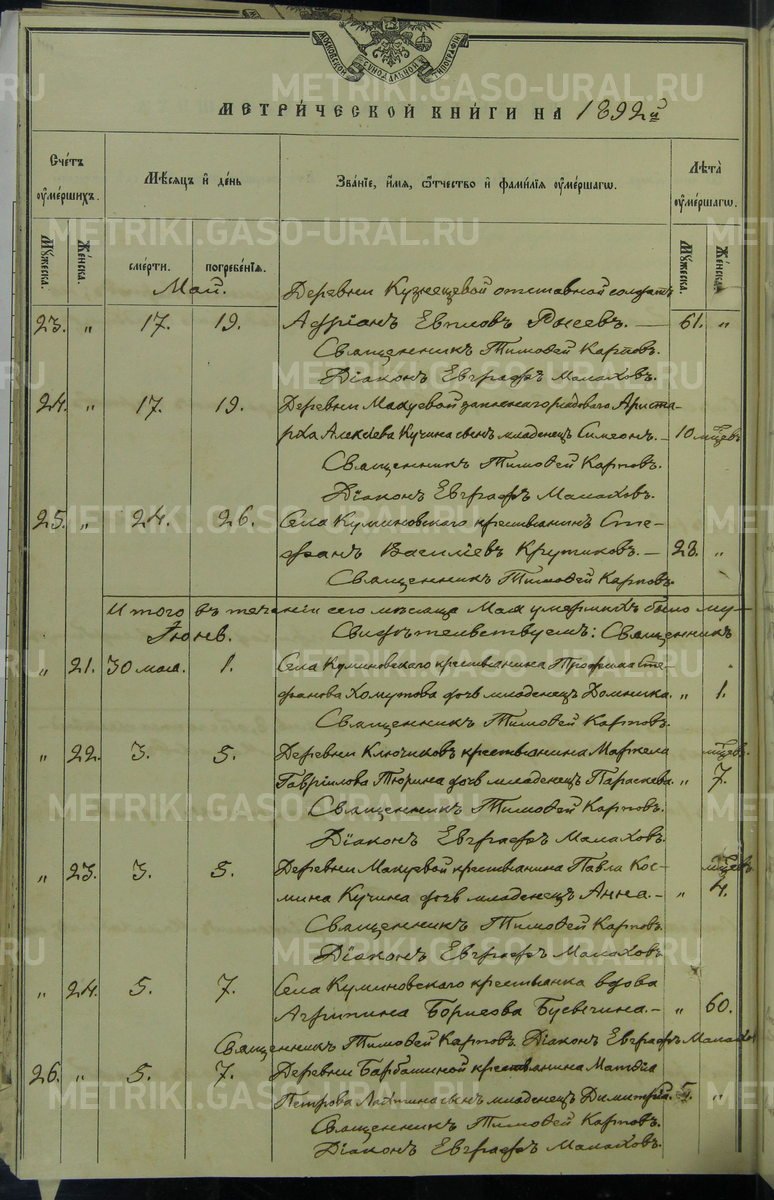 МОСКОВСКОЙ СѴНОДАЛЬНОЙ ТИПОГРАФІИ
МЕТРИ́ЧЕСКОЙ КНИ́ГИ НА 1892й
Сче́тъ ᲂу҆ме́ршихъ. Мѣ́сяцъ и҆ де́нь Зва́нїе, и҆́мя, ѻ҆́тчество и҆ фами́лїя ᲂу҆ме́ршагѡ. Лѣ́та ᲂу҆ме́ршагѡ.
Мꙋ́жеска. Же́нска. сме́рти. погребе́нїѧ. Мꙋ́жеска. Же́нска.
Май. Деревни Кузнецевой отставной солдатъ
23. „ 17. 19. Адріанъ Евпловъ — 61. „
Священникъ Тимоѳей Карповъ.
Діаконъ Евграфъ Малаховъ.
24. „ 17. 19. Деревни Макуевой запаснаго рядоваго Ариста-
рха Алексіева Кучина сынъ младенецъ Симеонъ. — 10 мѣцевъ
Священникъ Тимоѳей Карповъ.
Діаконъ Евграфъ Малаховъ.
25. „ 24. 26. Села Куминовскаго крестьянинъ Сте-
фанъ Василіевъ Крутиковъ. — 23. „
Священникъ Тимоѳей Карповъ.
Итого въ теченіи сего мѣсяца Мая умершихъ было му-
Іюнь. Свидѣтельствуемъ: Священникъ
„ 21. 30 мая. 1. Села Куминовскаго крестьянина Трофима Сте-
фанова Хомутова дочь младенецъ Домника. „ 1.
Священникъ Тимоѳей Карповъ.
„ 22. 3. 5. Деревни Ключиковъ крестьянина Маркела мѣцевъ
Гавріилова Тюрина дочь младенецъ Параскева. „ 7.
Священникъ Тимоѳей Карповъ.
Діаконъ Евграфъ Малаховъ.
„ 23. 3. 5. Деревни Макуевой крестьянина Павла Кос- мѣцевъ
мина Кучина дочь младенецъ Анна. — „ 4.
Священникъ Тимоѳей Карповъ.
Діаконъ Евграфъ Малаховъ
„ 24. 5. 7. Села Куминовскаго крестьянка вдова
Агрипина Борисова Бусыгина. — „ 60.
Священникъ Тимоѳей Карповъ. Діаконъ Евграфъ Малахов
26. „ 5. 7. Деревни Барбашиной крестьянина Матѳіа
Петрова сынъ младенецъ Димитрій. 5. „
Священникъ Тимоѳей Карповъ.
Діаконъ Евграфъ Малаховъ.
METRIKI.GASO-URAL.RU